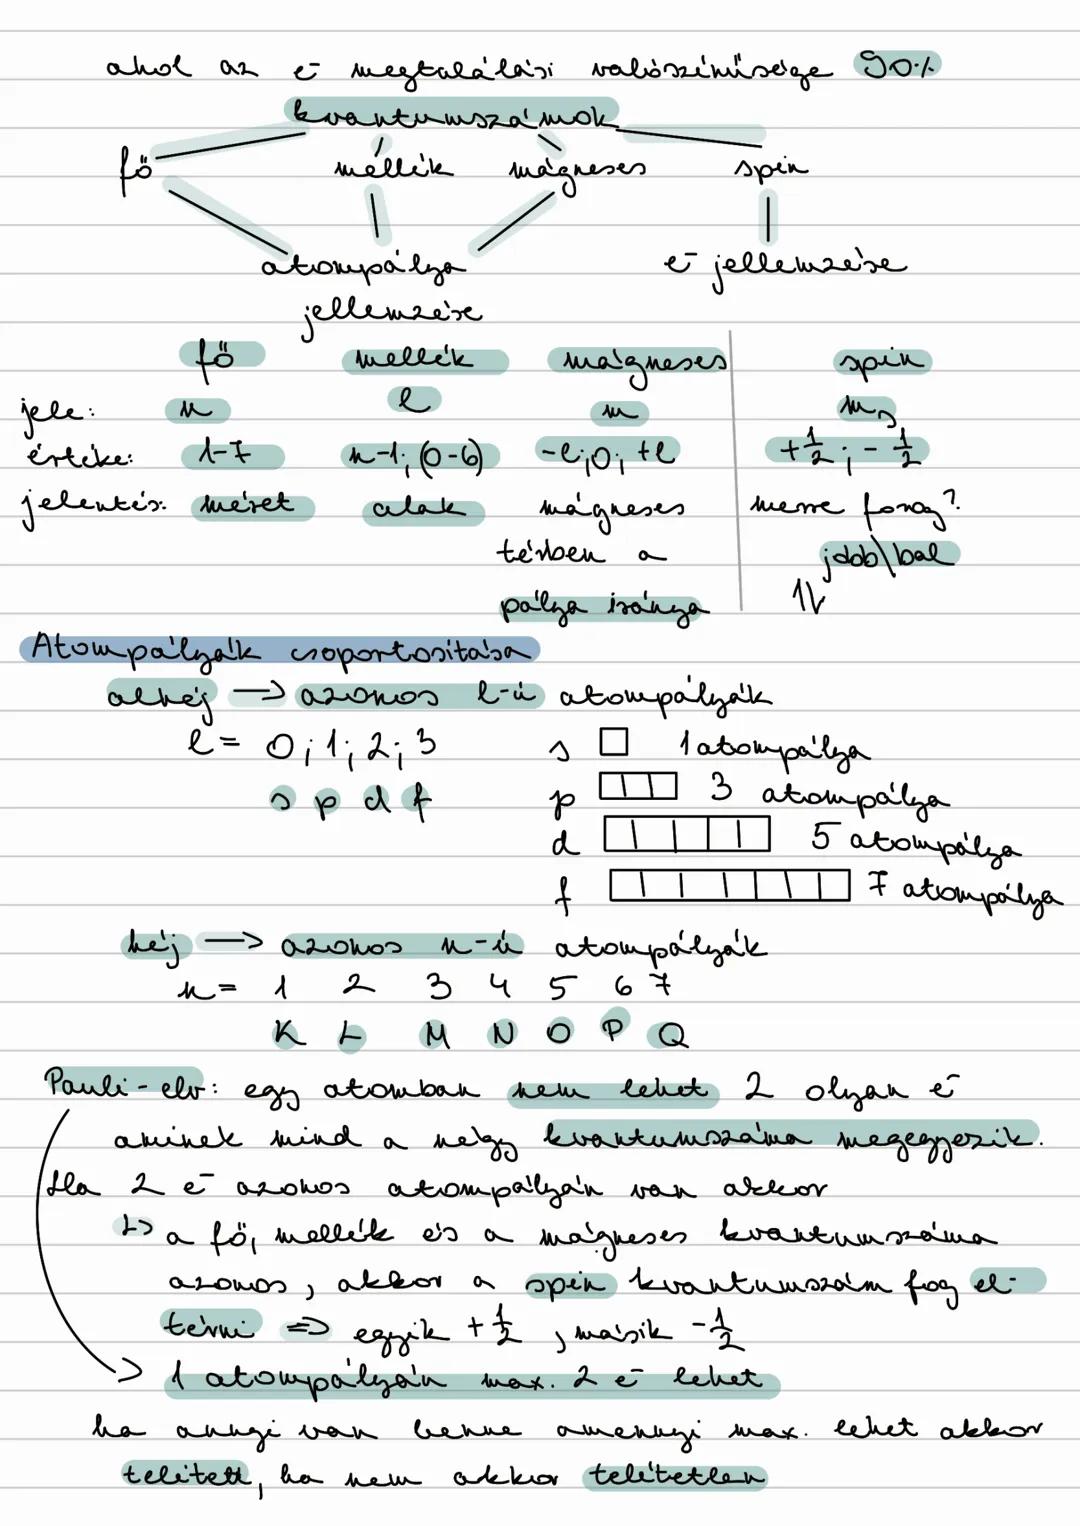 ahol az e⁻ megtalálási valószínűsége 90%
kvantumszámok
fő mellék mágneses spin
atompálya e⁻ jellemzése
jellemzése
fő mellék mágneses spin
jele: n l m ms
értéke: 1-7 n-1; (0-6) -l; 0; +l +1/2; -1/2
jelentés: méret alak mágneses merre forog?
térben a jobb\bal
pálya iránya ↿⇂
Atompályák csoportosítása
alhéj → azonos l-ú atompályák
l = 0; 1; 2; 3 s 1 atompálya
s p d f p 3 atompálya
d 5 atompálya
f 7 atompálya
héj → azonos n-ú atompályák
n = 1 2 3 4 5 6 7
K L M N O P Q
Pauli-elv: egy atomban nem lehet 2 olyan e⁻
aminek mind a négy kvantumszáma megegyezik.
Ha 2 e⁻ azonos atompályán van akkor
↳ a fő, mellék és a mágneses kvantumszáma
azonos, akkor a spin kvantumszám fog el-
térni ⇒ egyik +1/2, másik -1/2
→ 1 atompályán max. 2 e⁻ lehet
ha annyi van benne amennyi max. lehet akkor
telített, ha nem akkor telítetlen